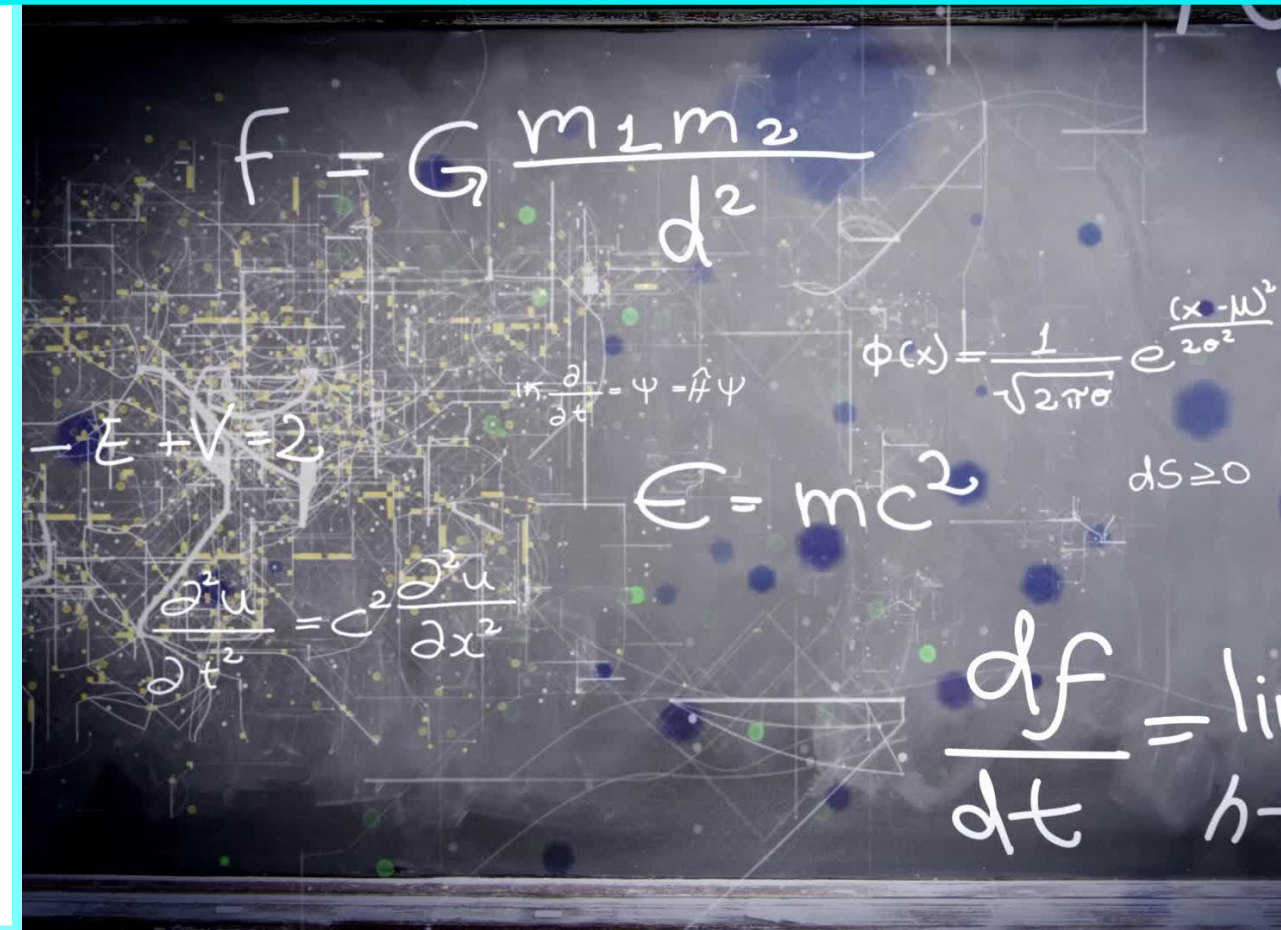 F = G m1 m2 / d²
ϕ(x) = 1 / √2πσ e (x-μ)² / 2σ²
∂ / ∂t = Ψ = Ĥ Ψ
- E + V = 2
E = mc²
dS ≥ 0
∂²u / ∂t² = c² ∂²u / ∂x²
df / dt =